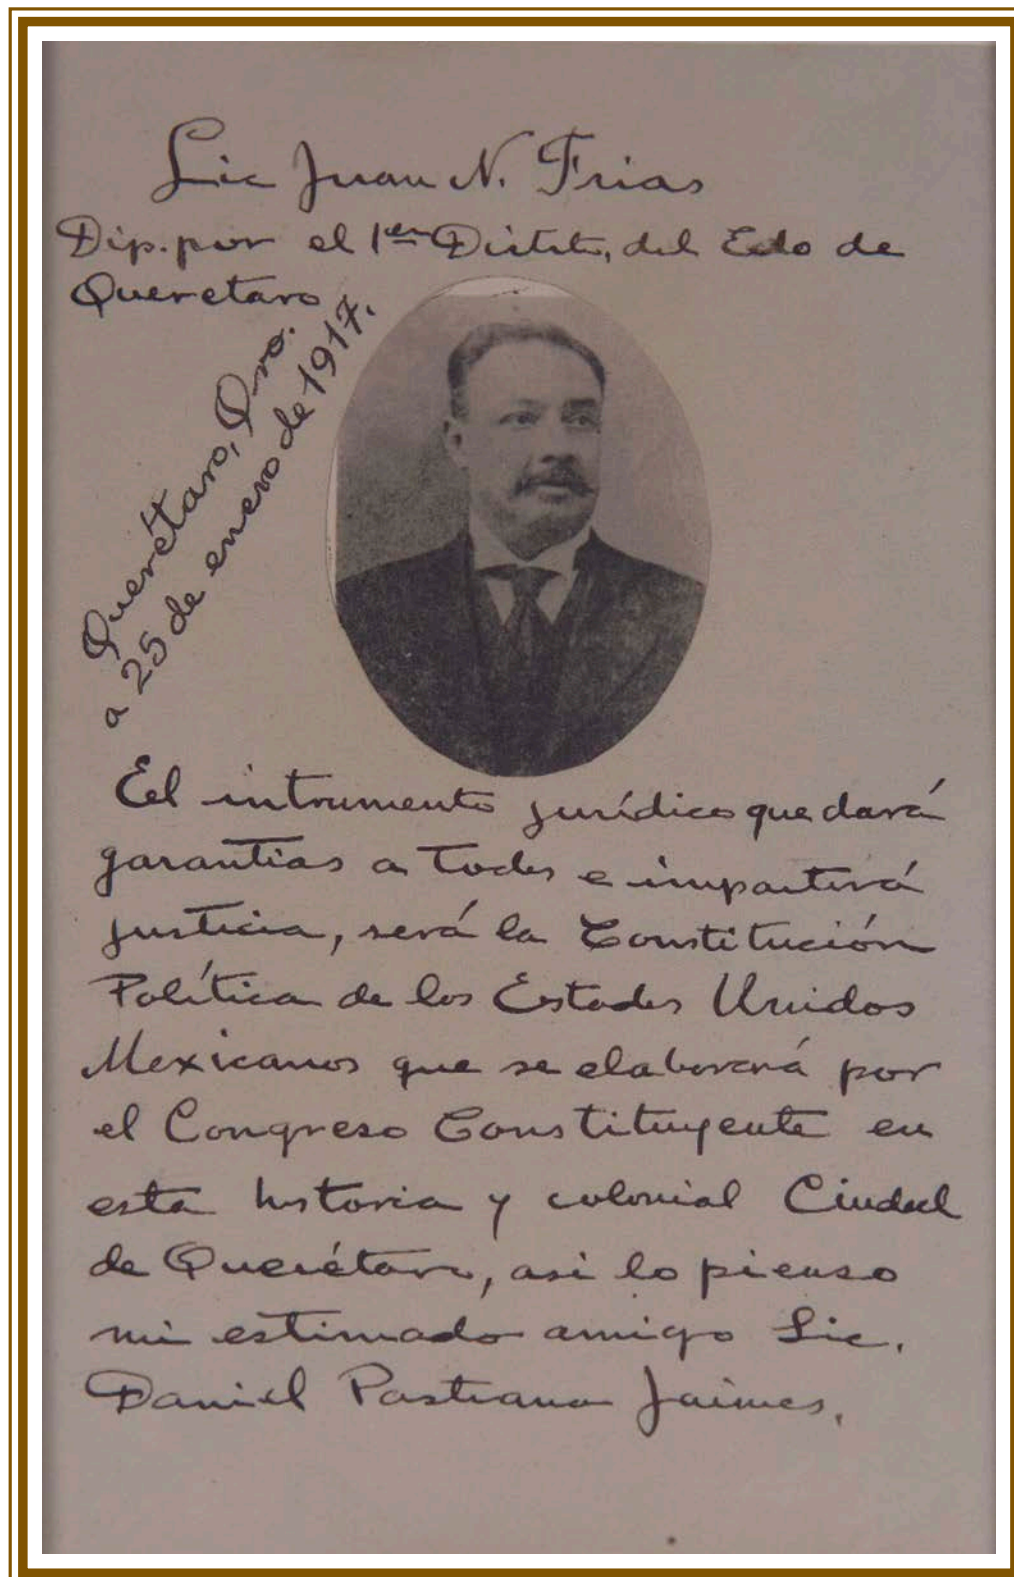 Lic Juan N. Frias
Dip. por el 1er Distrito, del Edo de
Queretaro
Querétaro, Qro.
a 25 de enero de 1917.
El intrumento jurídico que dará
garantias a todos e impartirá
justicia, será la Constitución
Política de los Estados Unidos
Mexicanos que se elaborará por
el Congreso Constituyente en
esta historia y colonial Ciudad
de Querétaro, asi lo pienso
mi estimado amigo Lic.
Daniel Pastrana Jaimes.